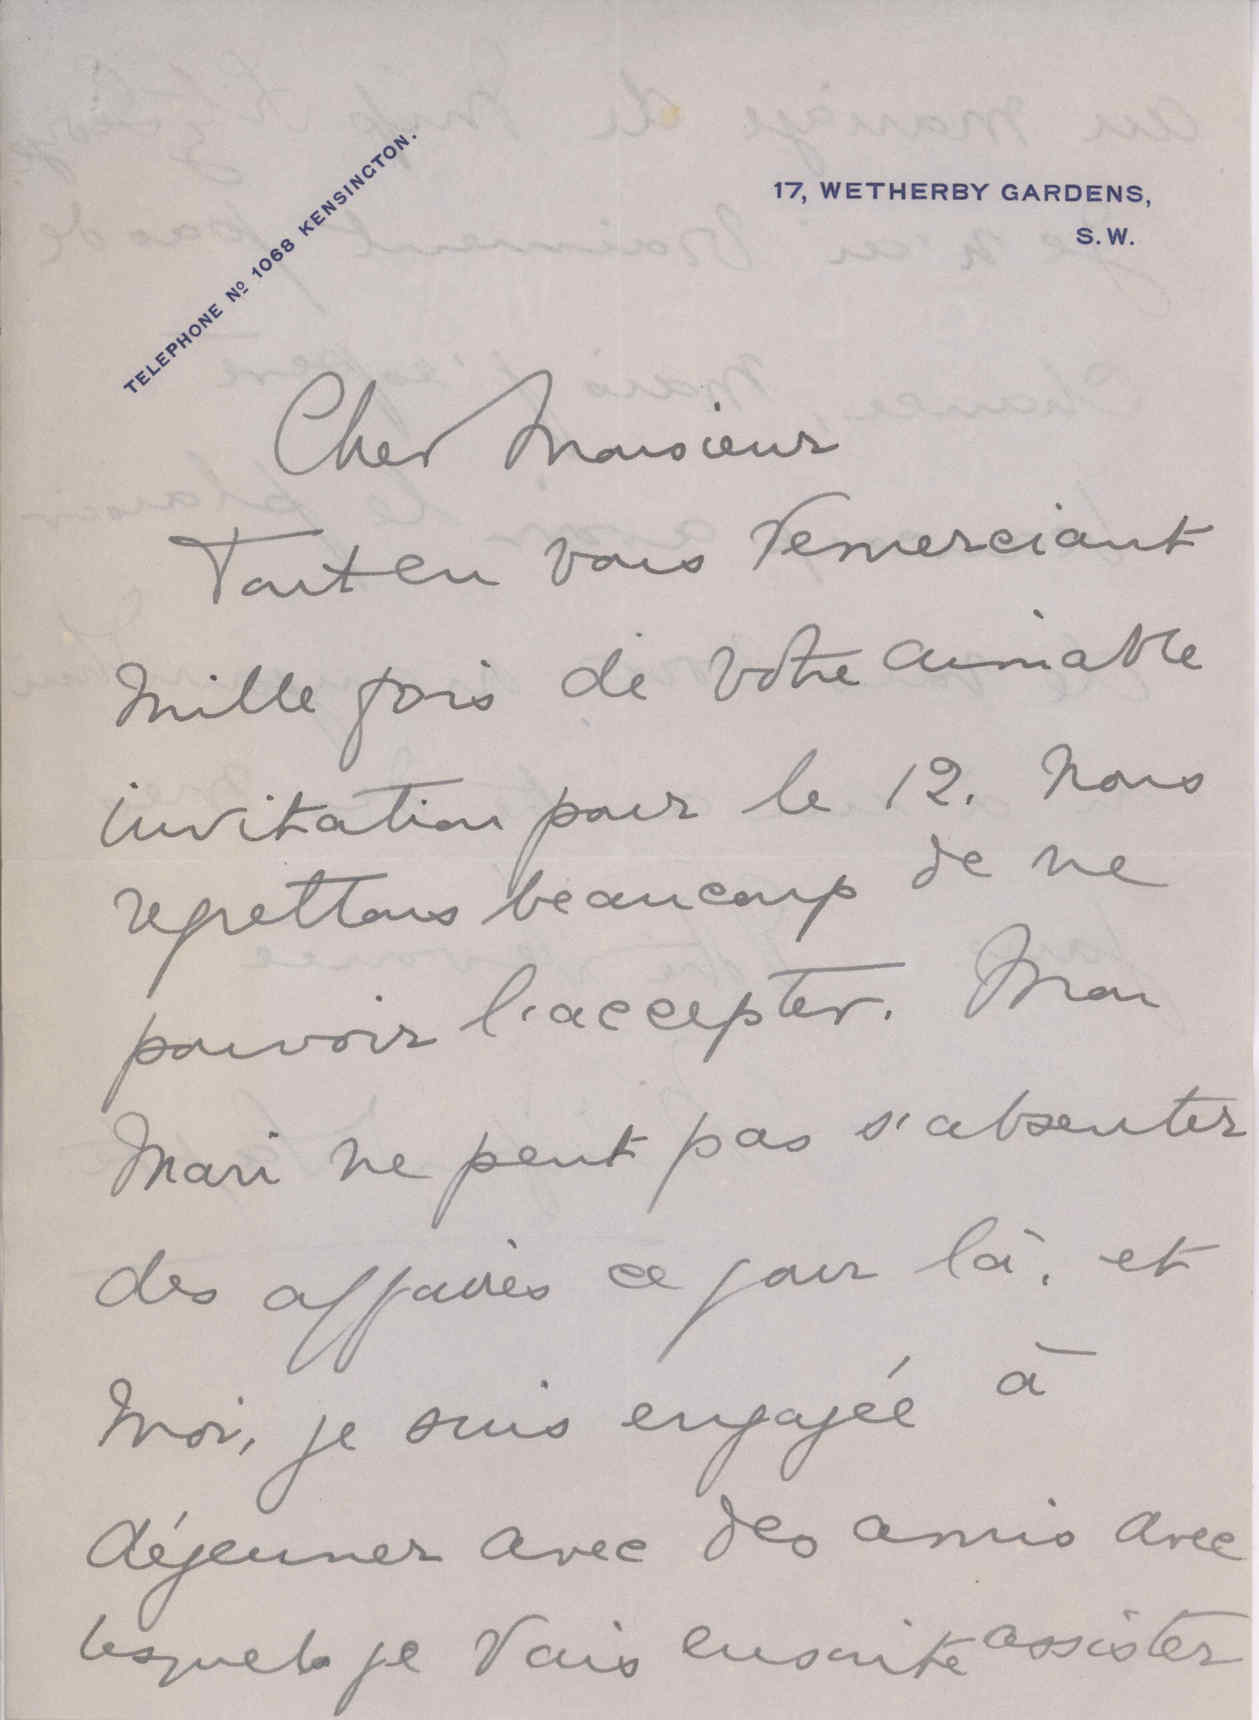 TELEPHONE Nº 1068 KENSINGTON.
17, WETHERBY GARDENS,
S.W.
Cher Monsieur
Tout en vous remerciant
mille fois de votre aimable
invitation pour le 12. nous
regrettons beaucoup de ne
pouvoir l'accepter. Mon
Mari ne peut pas s'absenter
des affaires ce jour là, et
moi, je suis engagée à
déjeuner avec des amis avec
lesquels je vais ensuite assister